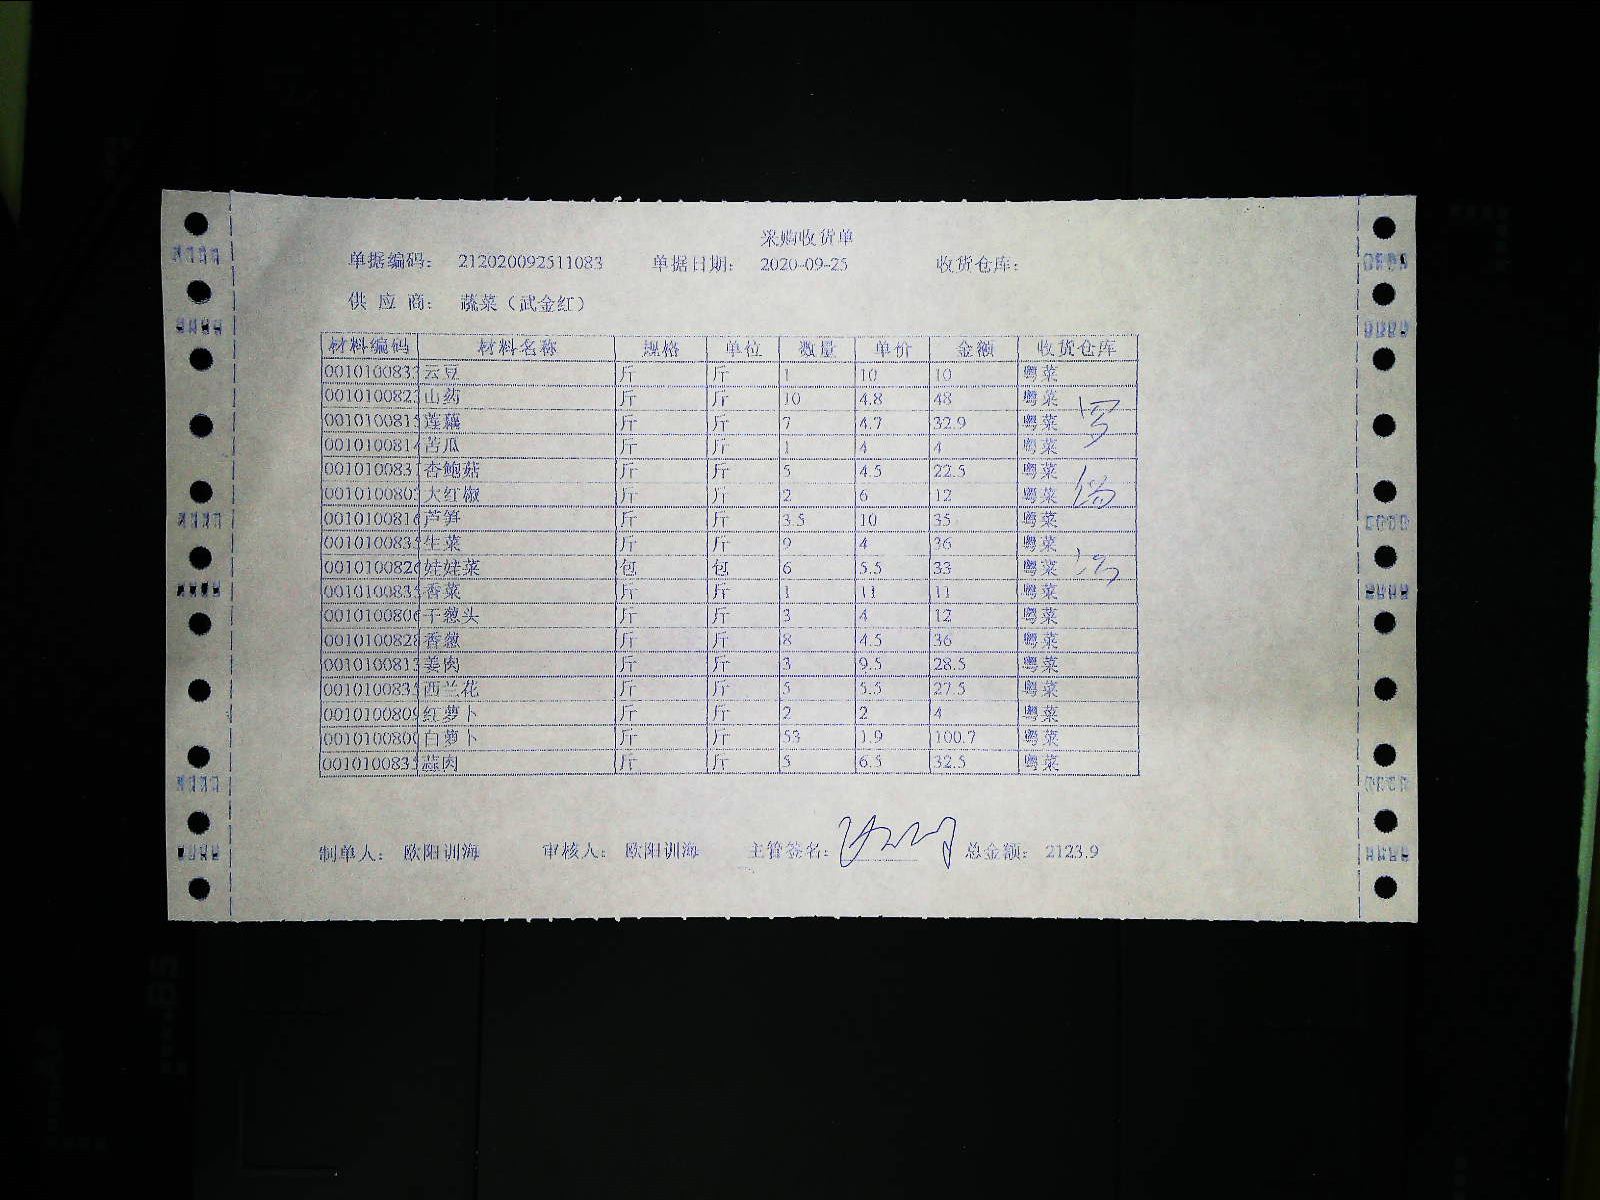 采购收货单
单据编码： 212020092511083 单据日期： 2020-09-25 收货仓库：
供 应 商： 蔬菜（武金红）
材料编码 材料名称 规格 单位 数量 单价 金额 收货仓库
001010083 云豆 斤 斤 1 10 10 粤菜
001010082 山药 斤 斤 10 4.8 48 粤菜
001010081 莲藕 斤 斤 7 4.7 32.9 粤菜
001010081 苦瓜 斤 斤 1 4 4 粤菜
001010083 杏鲍菇 斤 斤 5 4.5 22.5 粤菜
001010080 大红椒 斤 斤 2 6 12 粤菜
001010081 芦笋 斤 斤 3.5 10 35 粤菜
001010083 生菜 斤 斤 9 4 36 粤菜
001010082 娃娃菜 包 包 6 5.5 33 粤菜
001010083 香菜 斤 斤 1 11 11 粤菜
001010080 干葱头 斤 斤 3 4 12 粤菜
001010082 香葱 斤 斤 8 4.5 36 粤菜
001010081 姜肉 斤 斤 3 9.5 28.5 粤菜
001010083 西兰花 斤 斤 5 5.5 27.5 粤菜
001010080 红萝卜 斤 斤 2 2 4 粤菜
001010080 白萝卜 斤 斤 53 1.9 100.7 粤菜
001010083 蒜肉 斤 斤 5 6.5 32.5 粤菜
制单人： 欧阳训海 审核人： 欧阳训海 主管签名： 总金额： 2123.9